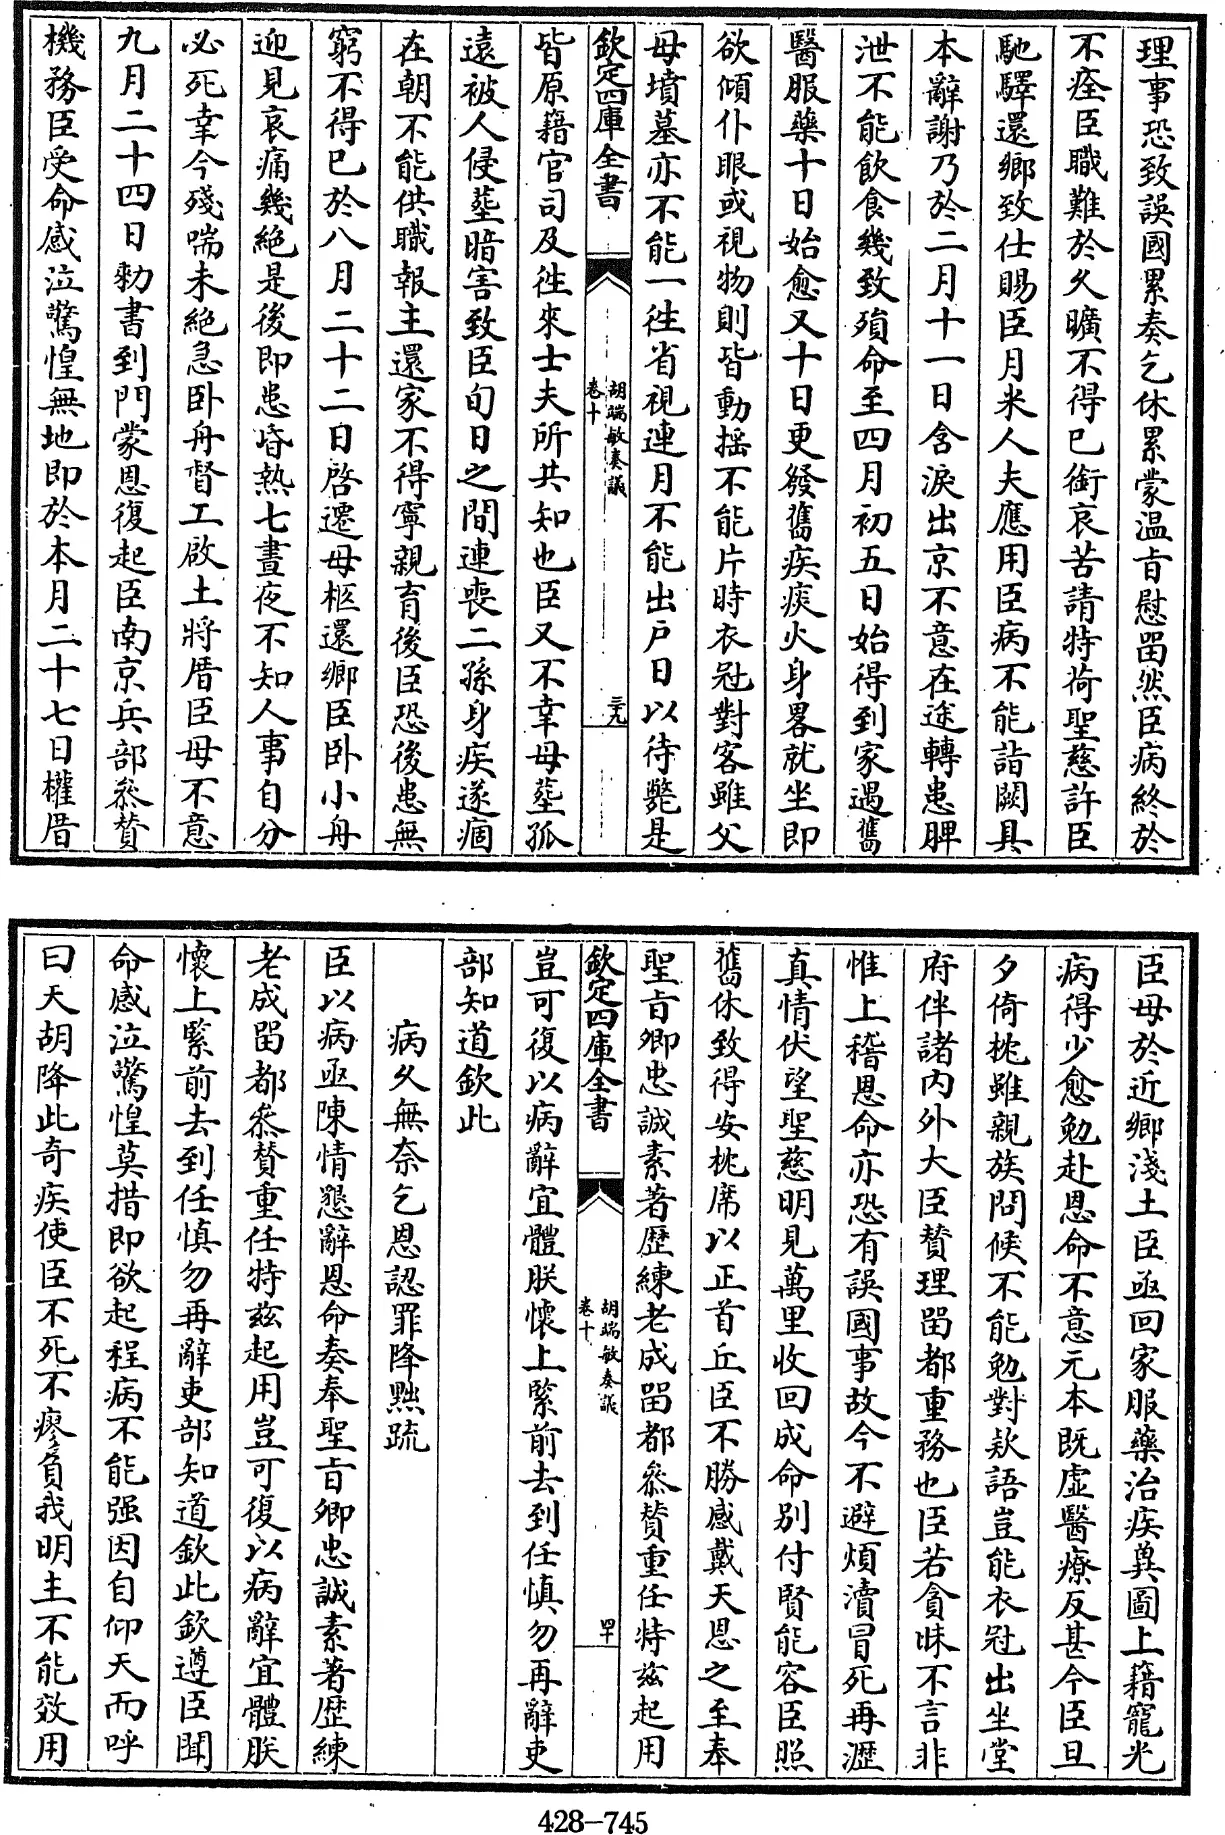 理事恐致誤國累奏乞休累蒙温㫖慰畱然臣病終於
不痊臣職難於久曠不得已銜哀苦請特荷聖慈許臣
馳驛還鄉致仕賜臣月米人夫應用臣病不能詣闕具
本辭謝乃於二月十一日含淚出京不意在途轉患脾
泄不能飲食幾致殞命至四月初五日始得到家遇舊
醫服藥十日始愈又十日更發舊疾痰火身畧就坐即
欲傾仆眼或視物則皆動揺不能片時衣冠對客雖父
母墳墓亦不能一徃省視連月不能出戸日以待斃是
欽定四庫全書
胡端敏奏議
卷十
三九
皆原籍官司及徃來士夫所共知也臣又不幸母塟孤
遠被人侵塟暗害致臣旬日之間連喪二孫身疾遂痼
在朝不能供職報主還家不得寧親育後臣恐後患無
窮不得已於八月二十二日啓遷母柩還鄉臣卧小舟
迎見哀痛幾絶是後即患昏熱七晝夜不知人事自分
必死幸今殘喘未絶急卧舟督工啟土將厝臣母不意
九月二十四日勅書到門蒙恩復起臣南京兵部叅賛
機務臣受命感泣驚惶無地即於本月二十七日權厝
臣母於近鄉淺土臣亟回家服藥治疾兾圖上籍寵光
病得少愈勉赴恩命不意元本既虚醫療反甚今臣旦
夕倚枕雖親族問候不能勉對欵語豈能衣冠出坐堂
府伴諸内外大臣賛理畱都重務也臣若貪昧不言非
惟上稽恩命亦恐有誤國事故今不避煩瀆冒死再瀝
真情伏望聖慈明見萬里收回成命别付賢能容臣照
舊休致得安枕席以正首丘臣不勝感戴天恩之至奉
聖㫖卿忠誠素著歴練老成畱都叅賛重任特兹起用
欽定四庫全書
胡端敏奏議
卷十
四十
豈可復以病辭宜體朕懷上緊前去到任慎勿再辭吏
部知道欽此
病久無奈乞恩認罪降黜疏
臣以病亟陳情懇辭恩命奏奉聖㫖卿忠誠素著歴練
老成畱都叅賛重任特兹起用豈可復以病辭宜體朕
懷上緊前去到任慎勿再辭吏部知道欽此欽遵臣聞
命感泣驚惶莫措即欲起程病不能强因自仰天而呼
曰天胡降此奇疾使臣不死不瘳負我明主不能效用
428-745